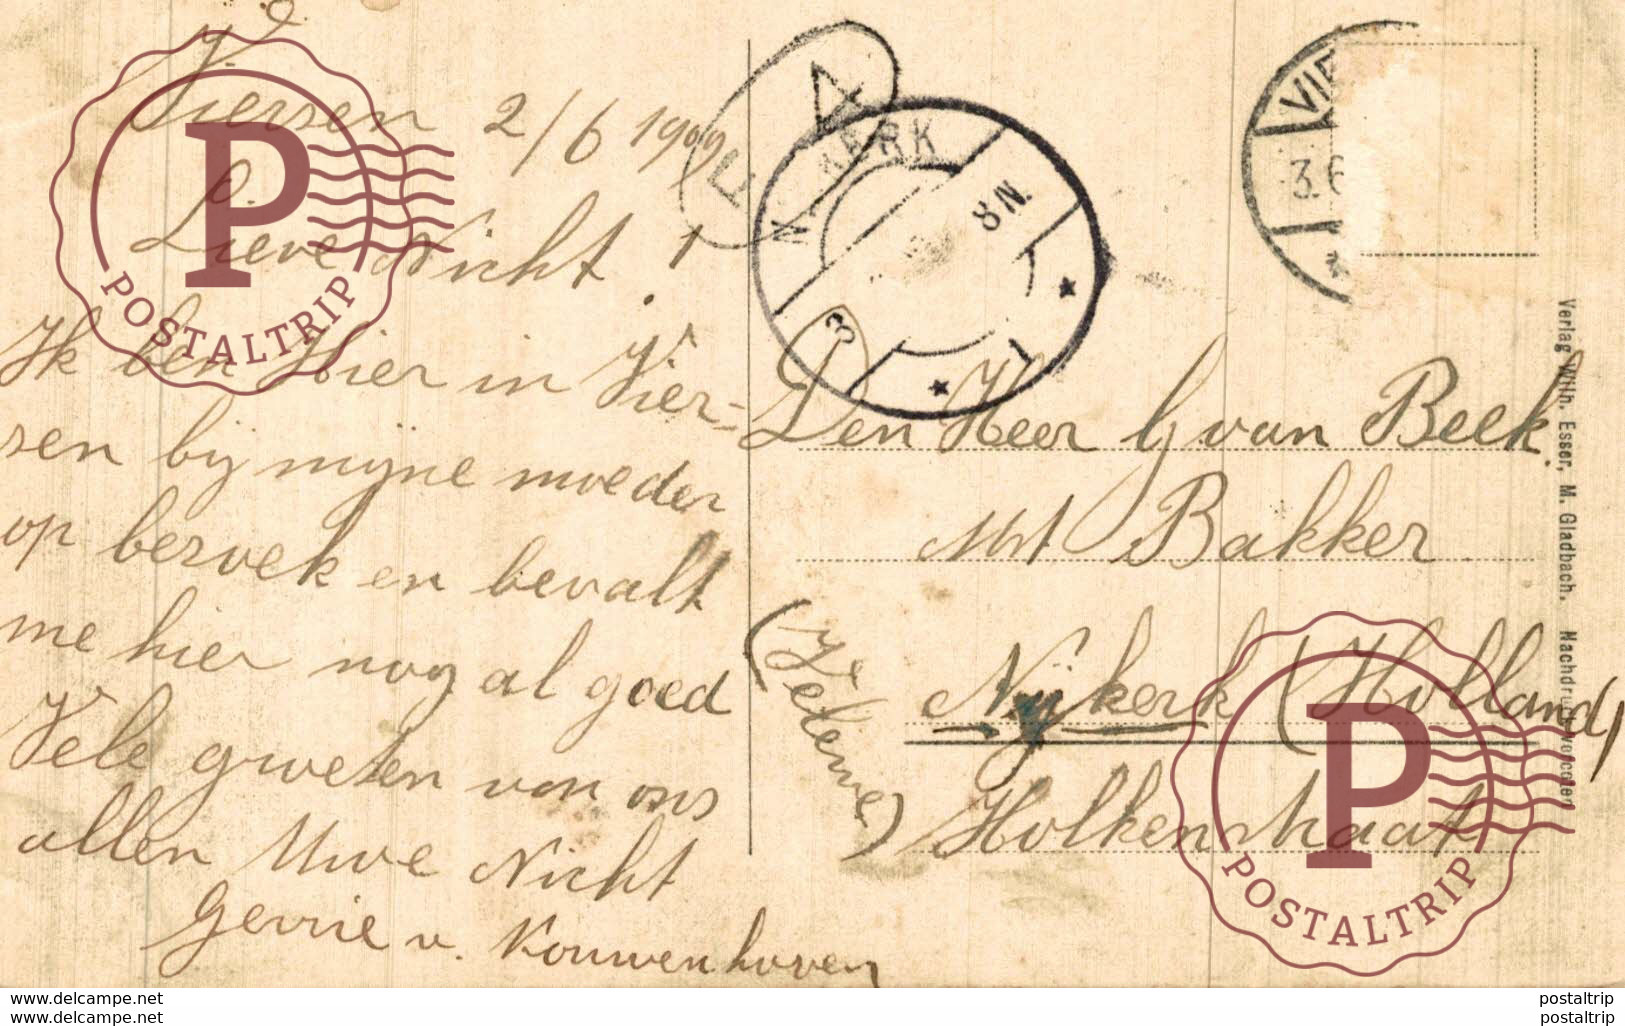 Viersen 2/6 1909
Lieve Nicht!
Ik ben Hier in Vier=
sen bij mijne moeder
op bezoek en bevalt
me hier nog al goed
Vele groeten van ons
allen Uwe Nicht
Gerrie v. Kouwenhoven
4
RK
8 N.
3
VIE
3.6
Den Heer G van Beek.
Mst Bakker
Nijkerk (Holland)
Holkerstraat
Verlag Wilh. Esser, M. Gladbach. Nachdruck verboten
P
POSTALTRIP
P
POSTALTRIP
www.delcampe.net
www.delcampe.net
postaltrip
postaltrip